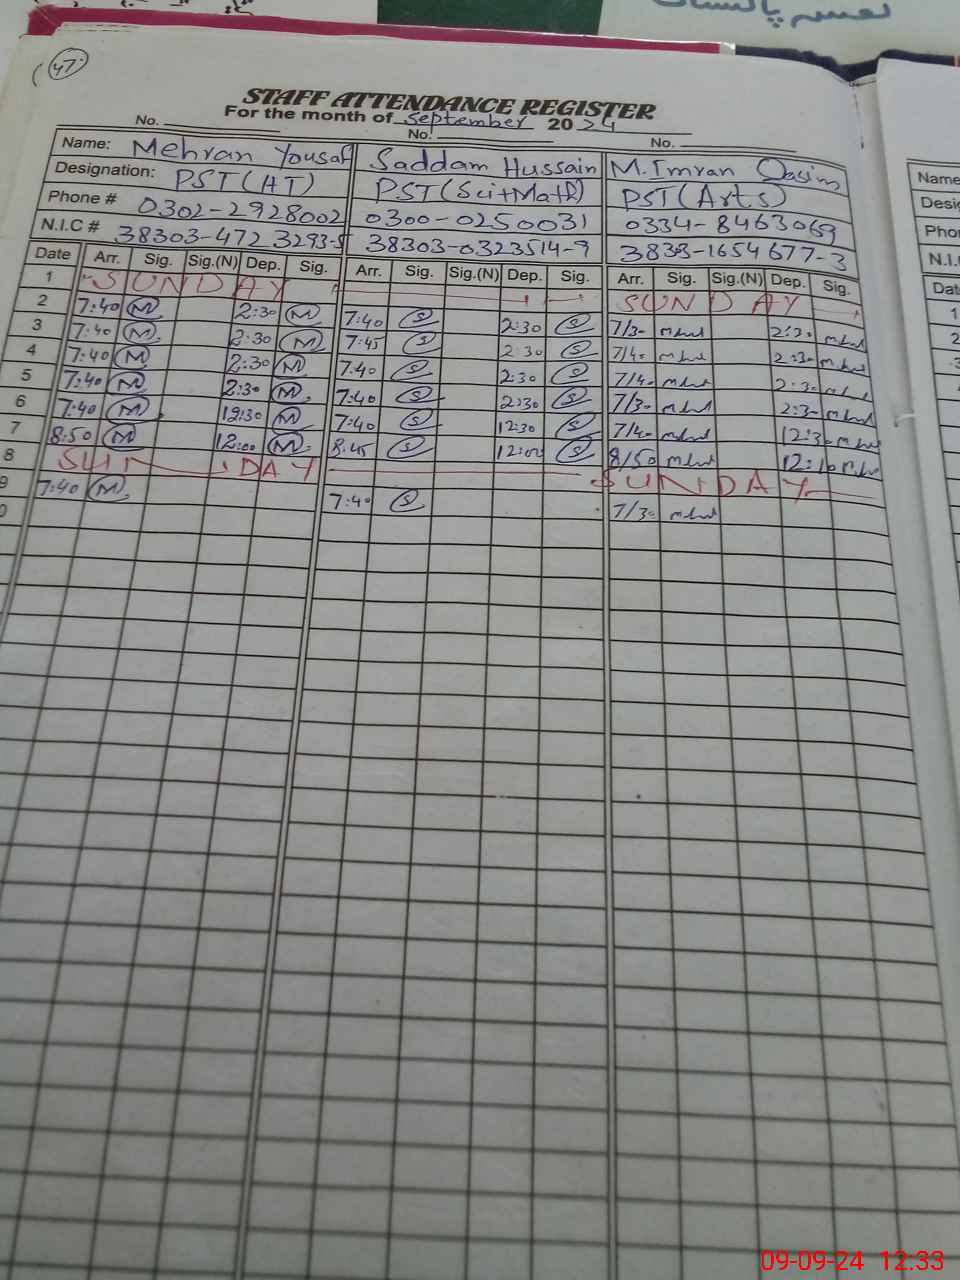 نفسہ پاکستان
47
STAFF ATTENDANCE REGISTER
For the month of September 2024
No. No. No.
Name: Mehran Yousaf Saddam Hussain M. Imran Qasim
Designation: PST (HT) PST (Sci+Math) PST (Arts)
Phone # 0302-2928002 0300-0250031 0334-8463069
N.I.C # 38303-4723293-5 38303-0323514-9 38383-1654677-3
Date Arr. Sig. Sig.(N) Dep. Sig. Arr. Sig. Sig.(N) Dep. Sig. Arr. Sig. Sig.(N) Dep. Sig.
1 SUNDAY SUNDAY
2 7:40 M 2:30 M 7:40 S 2:30 S 7/30 2:30
3 7:40 M 2:30 M 7:45 S 2:30 S 7/40 2:30
4 7:40 M 2:30 M 7:40 S 2:30 S 7/40 2:30
5 7:40 M 2:30 M 7:40 S 2:30 S 7/30 2:30
6 7:40 M 12:30 M 7:40 S 12:30 S 7/40 12:30
7 8:50 M 12:00 M 8:45 S 12:00 S 8/50 12:10
8 SUNDAY SUNDAY
9 7:40 M 7:40 S 7/30
0
Name
Desig
Phon
N.I.
Dat
1
2
3
09-09-24 12:33